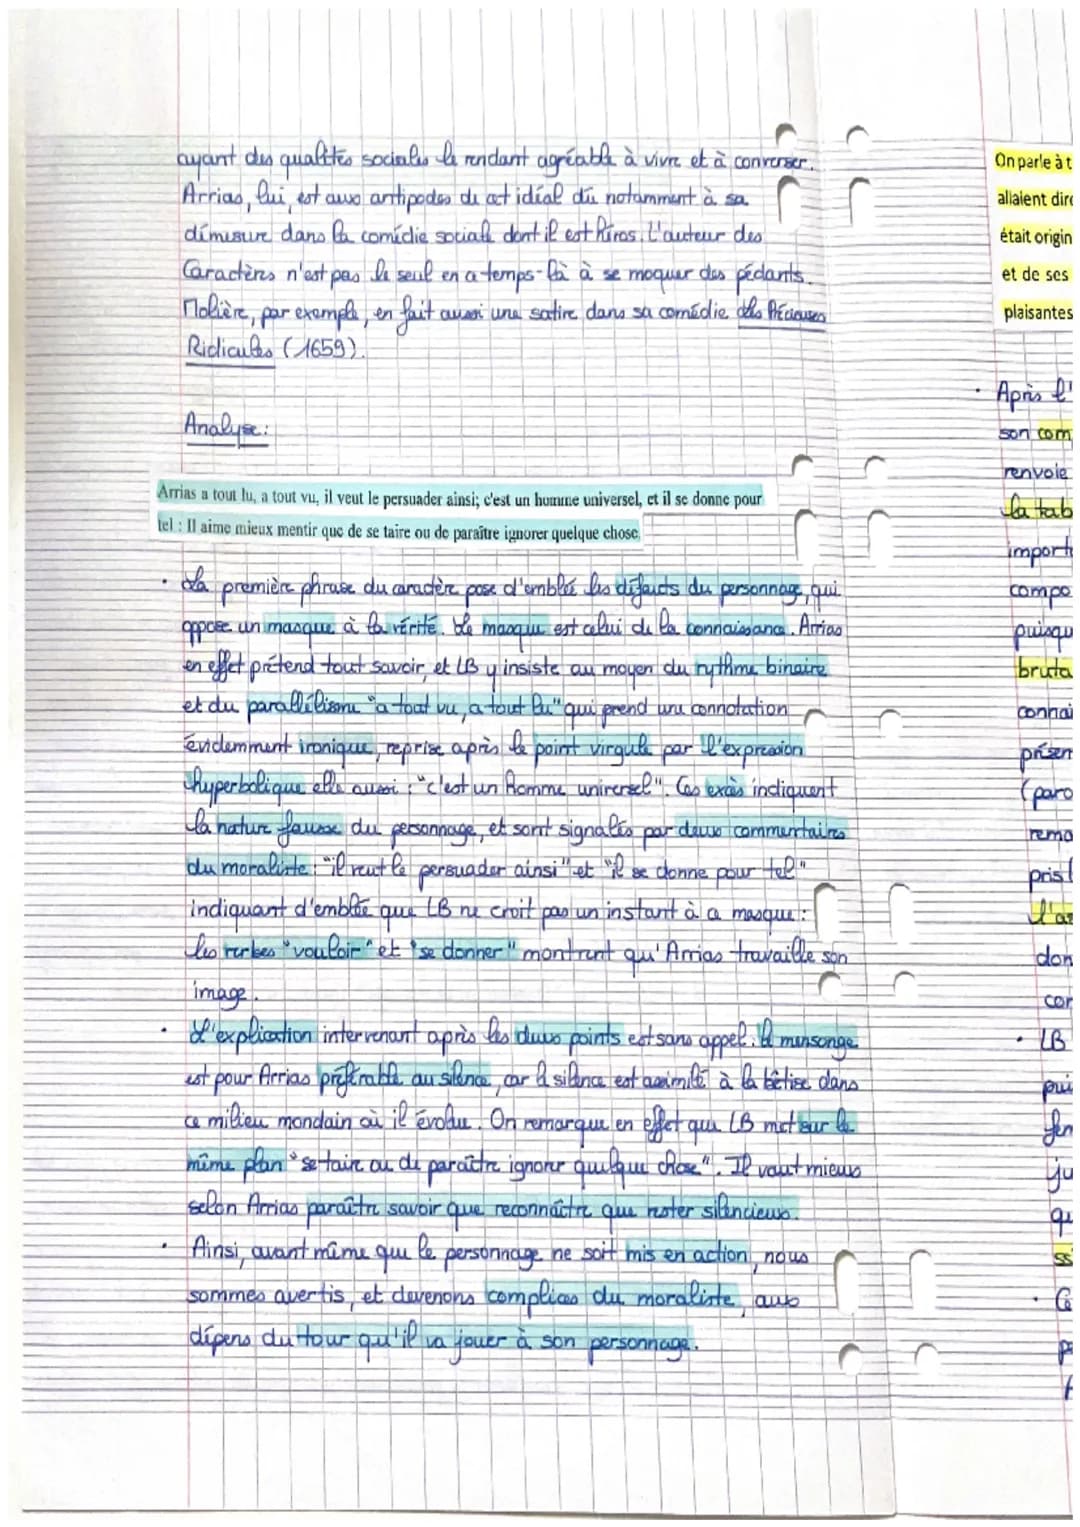 ayant des qualités sociales le rendant agréable à vivre et à converser.
Arrias, lui, est aux antipodes de cet idéal dû notamment à sa
démesure dans la comédie sociale dont il est héros. L'auteur des
Caractères n'est pas le seul en ce temps-là à se moquer des pédants.
Molière, par exemple, en fait aussi une satire dans sa comédie des Précieuses
Ridicules (1659).
Analyse :
Arrias a tout lu, a tout vu, il veut le persuader ainsi; c'est un homme universel, et il se donne pour
tel : Il aime mieux mentir que de se taire ou de paraître ignorer quelque chose.
• La première phrase du caractère pose d'emblée les défauts du personnage, qui
oppose un masque à la vérité. Le masque est celui de la connaissance. Arrias
en effet prétend tout savoir, et LB y insiste au moyen du rythme binaire
et du parallélisme "a tout vu, a tout lu" qui prend une connotation
évidemment ironique, reprise après le point virgule par l'expression
hyperbolique elle aussi : "c'est un homme universel". Ces excès indiquent
la nature fausse du personnage, et sont signalés par deux commentaires
du moraliste : "il veut le persuader ainsi" et "il se donne pour tel"
indiquant d'emblée que LB ne croit pas un instant à ce masque :
les verbes "vouloir" et "se donner" montrent qu'Arrias travaille son
image.
• L'explication intervenant après les deux points est sans appel : le mensonge
est pour Arrias préférable au silence, car le silence est assimilé à la bêtise dans
ce milieu mondain où il évolue. On remarque en effet que LB met sur le
même plan "se taire ou de paraître ignorer quelque chose". Il vaut mieux
selon Arrias paraître savoir que reconnaître que rester silencieux.
• Ainsi, avant même que le personnage ne soit mis en action, nous
sommes avertis, et devenons complices du moraliste, aux
dépens du tour qu'il va jouer à son personnage.
On parle à t
allaient dire
était origin
et de ses
plaisantes
• Après l'
son com
renvoie
la tab
import
compo
puisqu
bruta
connai
présen
(paro
rema
pris
don
con
• LB
pui
ju
qu